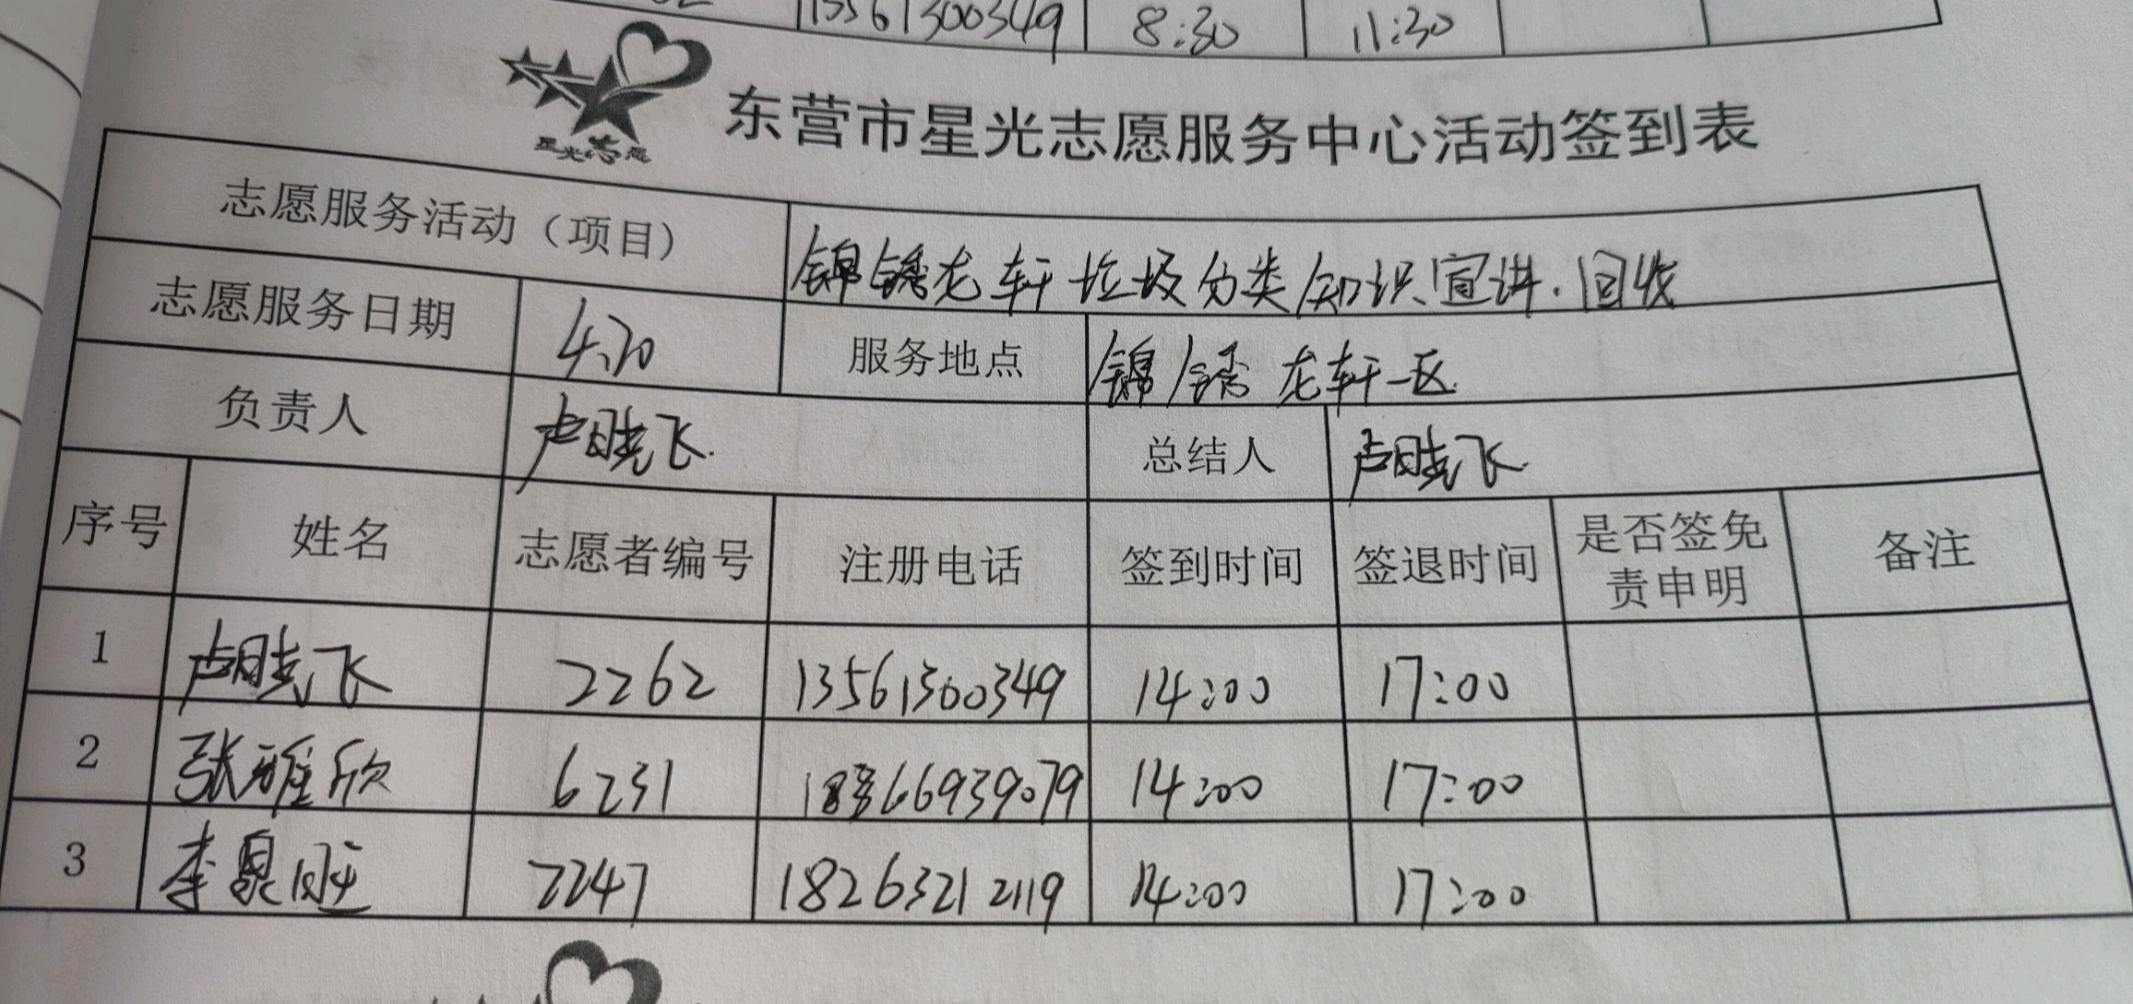 13561300349 8:30 11:30
星光志愿
东营市星光志愿服务中心活动签到表
志愿服务活动（项目） 锦绣龙轩垃圾分类知识宣讲.回收
志愿服务日期 4.20 服务地点 锦绣龙轩一区
负责人 卢晓飞 总结人 卢晓飞
序号 姓名 志愿者编号 注册电话 签到时间 签退时间 是否签免责申明 备注
1 卢晓飞 2262 13561300349 14:00 17:00
2 张雅欣 6231 18366939079 14:00 17:00
3 李 2247 18263212119 14:00 17:00